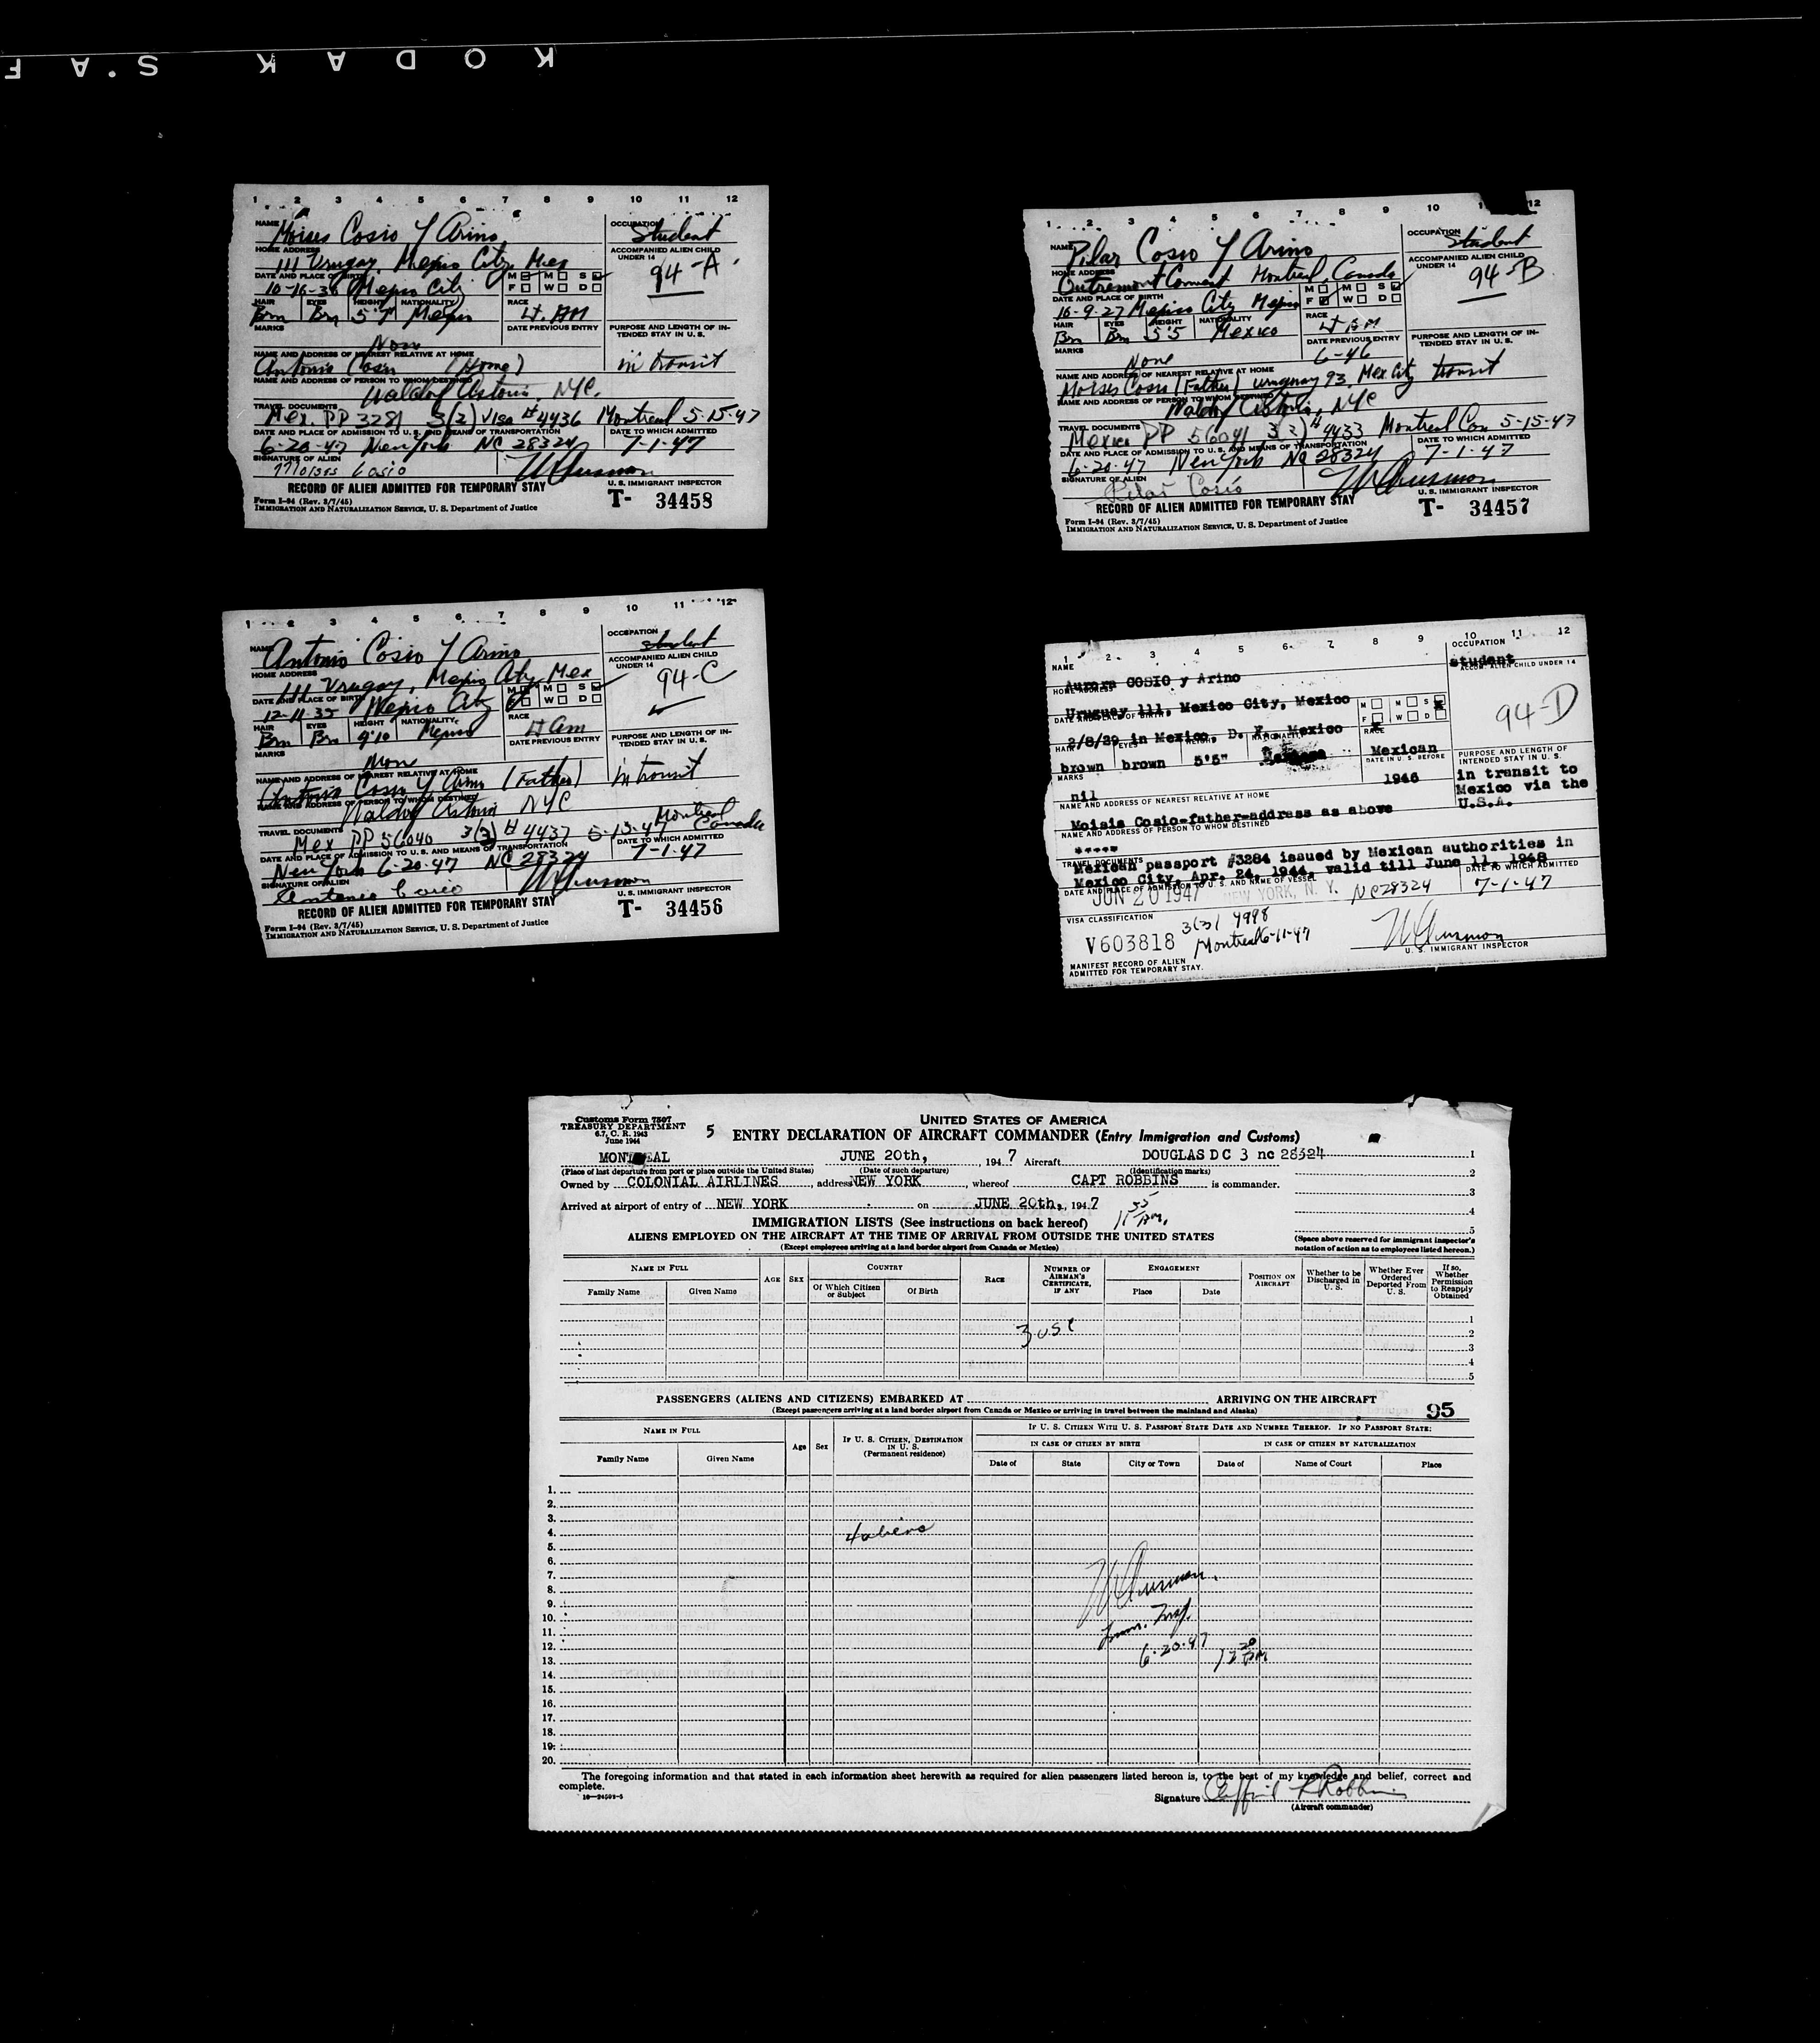 KODAK S.A F
1 2 3 4 5 6 7 8 9 10 11 12
NAME Moises Cosio Y Arino
OCCUPATION Student
HOME ADDRESS 111 Urugay, Mexico City, Mex
ACCOMPANIED ALIEN CHILD UNDER 14
94-A
DATE AND PLACE OF BIRTH 10-16-30 Mexico City
M F M W S D
HAIR Brn EYES Brn HEIGHT 5'7 NATIONALITY Mexico
RACE Lt. AM
MARKS None
DATE PREVIOUS ENTRY
PURPOSE AND LENGTH OF INTENDED STAY IN U. S.
in transit
NAME AND ADDRESS OF NEAREST RELATIVE AT HOME
Antonio Cosio (Home)
NAME AND ADDRESS OF PERSON TO WHOM DESTINED
Waldorf Astoria, NYC.
TRAVEL DOCUMENTS
Mex. PP 3281 3(3) Visa #4436 Montreal 5-15-47
DATE AND PLACE OF ADMISSION TO U. S. AND MEANS OF TRANSPORTATION
DATE TO WHICH ADMITTED
6-20-47 New York NC 28324 7-1-47
SIGNATURE OF ALIEN
Moises Cosio
U. S. IMMIGRANT INSPECTOR
RECORD OF ALIEN ADMITTED FOR TEMPORARY STAY
T- 34458
Form I-94 (Rev. 3/7/45)
IMMIGRATION AND NATURALIZATION SERVICE, U. S. Department of Justice
1 2 3 4 5 6 7 8 9 10 12
NAME Pilar Cosio Y Arino
OCCUPATION Student
HOME ADDRESS Outremont Convent Montreal, Canada
ACCOMPANIED ALIEN CHILD UNDER 14
94-B
DATE AND PLACE OF BIRTH 10-9-27 Mexico City Mexico
M F M W S D
HAIR Brn EYES Brn HEIGHT 5'5 NATIONALITY Mexico
RACE Lt AM
MARKS None
DATE PREVIOUS ENTRY 6-46
PURPOSE AND LENGTH OF INTENDED STAY IN U. S.
transit
NAME AND ADDRESS OF NEAREST RELATIVE AT HOME
Moises Cosio (Father) Uruguay 93, Mex City
NAME AND ADDRESS OF PERSON TO WHOM DESTINED
Waldorf Astoria, NYC
TRAVEL DOCUMENTS
Mexico PP 56041 3(3) #4433 Montreal Can 5-15-47
DATE AND PLACE OF ADMISSION TO U. S. AND MEANS OF TRANSPORTATION
DATE TO WHICH ADMITTED
6-20-47 New York NC 28324 7-1-47
SIGNATURE OF ALIEN
Pilar Cosío
U. S. IMMIGRANT INSPECTOR
RECORD OF ALIEN ADMITTED FOR TEMPORARY STAY
T- 34457
Form I-94 (Rev. 3/7/45)
IMMIGRATION AND NATURALIZATION SERVICE, U. S. Department of Justice
1 2 3 4 5 6 7 8 9 10 11 12
NAME Antonio Cosio Y Arino
OCCUPATION Student
HOME ADDRESS 111 Urugay, Mexico City, Mex
ACCOMPANIED ALIEN CHILD UNDER 14
94-C
DATE AND PLACE OF BIRTH 12-11-35 Mexico City
M F M W S D
HAIR Brn EYES Brn HEIGHT 4'10 NATIONALITY Mexico
RACE Lt Am
MARKS None
DATE PREVIOUS ENTRY
PURPOSE AND LENGTH OF INTENDED STAY IN U. S.
in transit
NAME AND ADDRESS OF NEAREST RELATIVE AT HOME
Antonio Cosio Y Arino (Father)
NAME AND ADDRESS OF PERSON TO WHOM DESTINED
Waldorf Astoria NYC
TRAVEL DOCUMENTS
Mex PP 56040 3(3) #4437 5-15-47 Montreal Canada
DATE AND PLACE OF ADMISSION TO U. S. AND MEANS OF TRANSPORTATION
DATE TO WHICH ADMITTED
New York 6-20-47 NC 28324 7-1-47
SIGNATURE OF ALIEN
Antonio Cosio
U. S. IMMIGRANT INSPECTOR
RECORD OF ALIEN ADMITTED FOR TEMPORARY STAY
T- 34456
Form I-94 (Rev. 3/7/45)
IMMIGRATION AND NATURALIZATION SERVICE, U. S. Department of Justice
1 2 3 4 5 6 7 8 9 10 11 12
NAME
OCCUPATION
student
Aurora COSIO y Arino
ACCOM. ALIEN CHILD UNDER 14
94-D
HOME ADDRESS
Uruguay 111, Mexico City, Mexico
DATE AND PLACE OF BIRTH
M F M W S D
2/8/29 in Mexico, D. F. Mexico
HAIR EYES HEIGHT NATIONALITY RACE
brown brown 5'5" Mexican
MARKS
DATE IN U. S. BEFORE
1946
PURPOSE AND LENGTH OF INTENDED STAY IN U. S.
in transit to
Mexico via the
U.S.A.
nil
NAME AND ADDRESS OF NEAREST RELATIVE AT HOME
Moisis Cosio-father-address as above
NAME AND ADDRESS OF PERSON TO WHOM DESTINED
*****
TRAVEL DOCUMENTS
Mexican passport #3284 issued by Mexican authorities in
Mexico City, Apr. 24, 1944, valid till June 11, 1948
DATE AND PLACE OF ADMISSION TO U. S. AND NAME OF VESSEL
DATE TO WHICH ADMITTED
JUN 20 1947 NEW YORK, N. Y. NC28324 7-1-47
VISA CLASSIFICATION
3(3) 4998
V603818 Montreal 6-11-47
U. S. IMMIGRANT INSPECTOR
MANIFEST RECORD OF ALIEN
ADMITTED FOR TEMPORARY STAY.
Customs Form 7507
TREASURY DEPARTMENT
6.7, C. R. 1943
June 1944
5
UNITED STATES OF AMERICA
ENTRY DECLARATION OF AIRCRAFT COMMANDER (Entry Immigration and Customs)
MONTREAL JUNE 20th, , 1947 Aircraft DOUGLAS D C 3 nc 28324
(Place of last departure from port or place outside the United States) (Date of such departure) (Identification marks)
Owned by COLONIAL AIRLINES , address NEW YORK , whereof CAPT ROBBINS is commander.
Arrived at airport of entry of NEW YORK on JUNE 20th, , 1947
11 55 AM.
1
2
3
4
5
IMMIGRATION LISTS (See instructions on back hereof)
ALIENS EMPLOYED ON THE AIRCRAFT AT THE TIME OF ARRIVAL FROM OUTSIDE THE UNITED STATES
(Except employees arriving at a land border airport from Canada or Mexico)
(Space above reserved for immigrant inspector's notation of action as to employees listed hereon.)
NAME IN FULL
Family Name Given Name
AGE SEX
COUNTRY
Of Which Citizen or Subject Of Birth
RACE
NUMBER OF AIRMAN'S CERTIFICATE, IF ANY
ENGAGEMENT
Place Date
POSITION ON AIRCRAFT
Whether to be Discharged in U. S.
Whether Ever Ordered Deported From U. S.
If so, Whether Permission to Reapply Obtained
1
2
3
4
5
3 USC
PASSENGERS (ALIENS AND CITIZENS) EMBARKED AT ARRIVING ON THE AIRCRAFT
(Except passengers arriving at a land border airport from Canada or Mexico or arriving in travel between the mainland and Alaska)
95
NAME IN FULL
Family Name Given Name
Age Sex
IF U. S. CITIZEN, DESTINATION IN U. S.
(Permanent residence)
IF U. S. CITIZEN WITH U. S. PASSPORT STATE DATE AND NUMBER THEREOF. IF NO PASSPORT STATE:
IN CASE OF CITIZEN BY BIRTH IN CASE OF CITIZEN BY NATURALIZATION
Date of State City or Town Date of Name of Court Place
1.
2.
3.
4. 4 aliens
5.
6.
7.
8.
9.
10.
11. Imm. Insp.
12. 6-20-47
13. 12 20 PM
14.
15.
16.
17.
18.
19.
20.
The foregoing information and that stated in each information sheet herewith as required for alien passengers listed hereon is, to the best of my knowledge and belief, correct and
complete.
16—24502-5
Signature Clifford Robbins
(Aircraft commander)